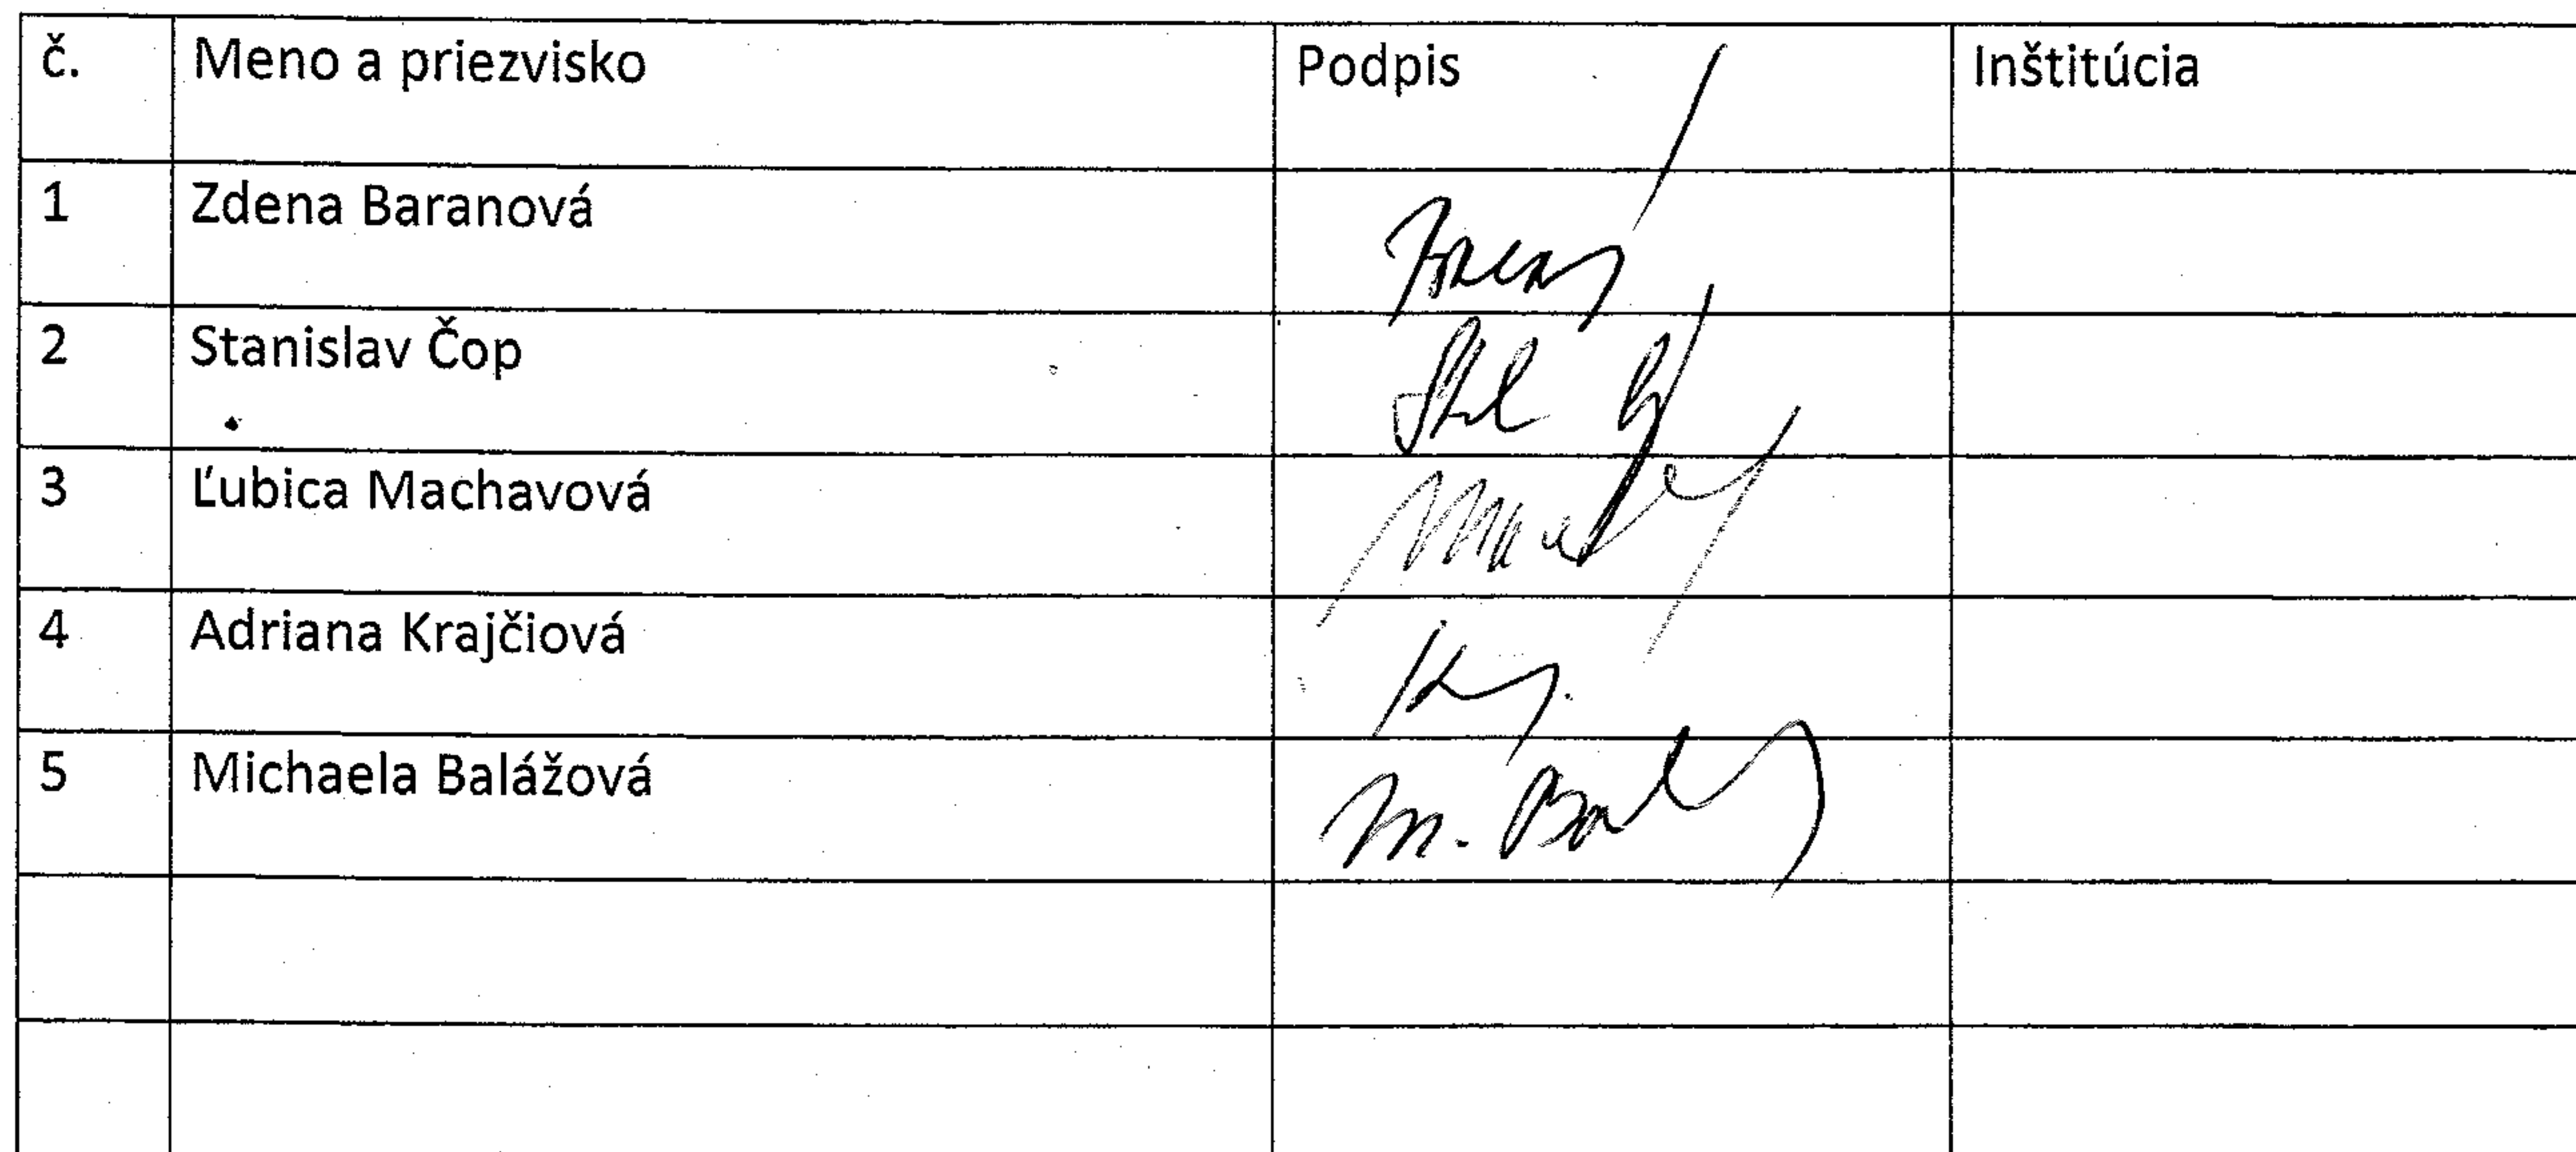 č. Meno a priezvisko Podpis Inštitúcia
1 Zdena Baranová
2 Stanislav Čop
3 Ľubica Machavová
4 Adriana Krajčiová
5 Michaela Balážová M. Bal